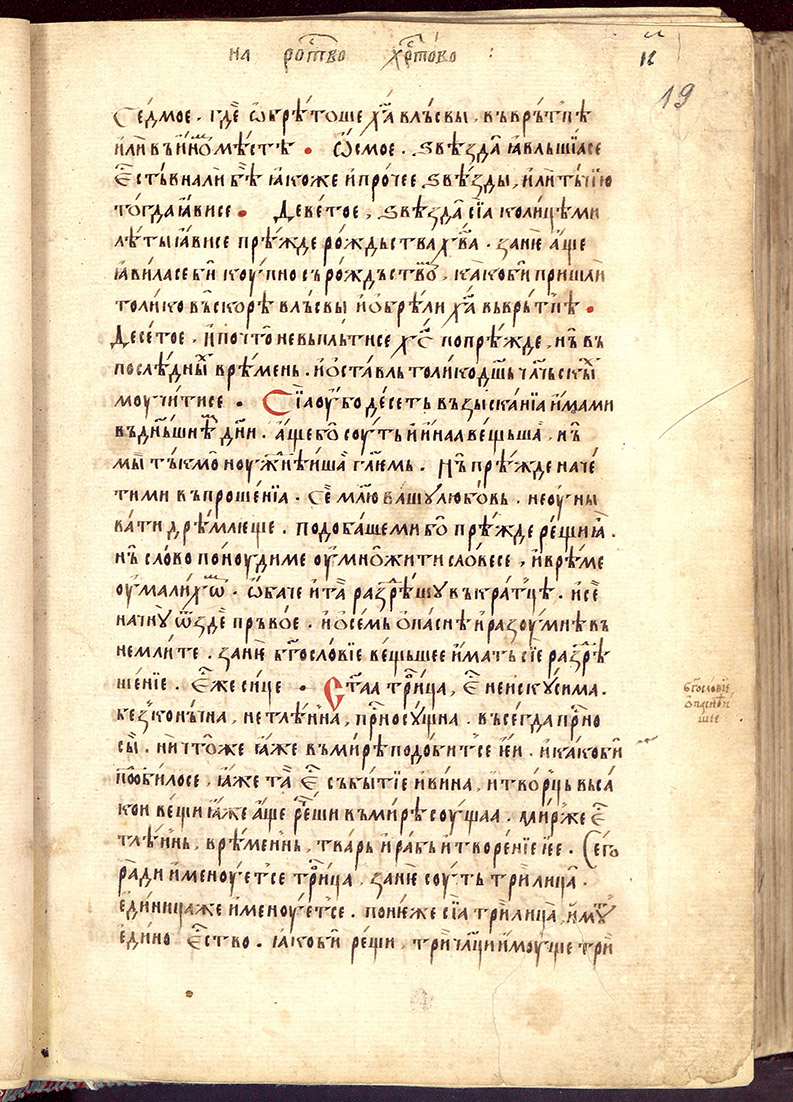 на рⷪ҇тво хрⷭ҇тово :
н҃
19
Седмое . гдѐ ѡ҆брѣ́тоше хⷭ҇а влъсвы , въврътпѣ
и҆лѝ въи҆но́мⸯ мѣстѣ • Ѡ҆́смое . ѕвѣзда̀ ꙗ҆вльшїасе
є҆́сть внали бѣ̀ ꙗ҆коже и҆про́чее ѕвѣ́зды , и҆лѝ тъ́чїю
тогда ꙗ҆́висе • Деве́тое , ѕвѣзда̀ сїа колицѣми
лѣ́ты ꙗ҆́висе прѣ́жде ро́ждьства хⷭ҇ва . занѐ а҆́ще
ꙗ҆виласе бѝ коу́пно съро́ждъствѡⷨ , ка̀коби пришлѝ
толико въскорѣ влъсвы и҆ѻбрѣли хⷭ҇а вьврътпѣ •
Десе́тое . и҆почто̀ невъплътисе хⷭ҇с попрѣ́жде , нъ̀ въ
послѣ́дныⷯ врѣ́мень . и҆ѻста́вль толико дш҃ь чл҃чьскыⷯ
моучи́тисе • Сїа ᲂу҆бо де́сеть възыска́нїа и҆́мами
въдн҃ьшнѥⷨ дн҃и . а҆́ще бо̀ соуть и҆и҆наа ве́щьша , нъ̀
мы̀ тъкмо̀ ноужнѣ́ишаа гл҃емь . Нъ̀ прѣ́жде наче́
тими въпроше́нїа . се̏ млⷧ҇ю вашу любо́вь . неоуны
вати дрѣ́млюще . подоба́шеми бо̀ прѣ́жде рещѝ ꙗ҆̀ .
нъ̀ сло́во пѡноудиме ᲂу҆мно́жити слове́се , и҆врѣ́ме
ᲂу҆малихⷨѡ . ѡ҆́баче и҆та̀ разрѣ́шу въкратцѣ . и҆се̏
начну ѿздѐ пръ́вое . и҆ѻсемь ѻпа́снѣ и҆разоумнѣ въ
немлите . занѐ бг҃осло́вїе ве́щьшее и҆́мать сїе разрѣ
ше́нїе . Є҆́же си́це • Ст҃аа трⷪ҇ица , є҆ⷭ҇ неискусима .
безконъ́чна , нетлѣ́нна , прⷭ҇носу́щна . въсегда̀ прⷭ҇но
сы̀ . ничто́же ꙗ҆́же въмирѣ подобитсе ѥ҆и . и҆какобѝ
подо́билосе , ꙗ҆́же та̀ є҆ⷭ҇ събы́тїе и҆вина , и҆тво́рць въса
кои ве́щи ꙗ҆́же а҆́ще рещи̏ въмирѣ соущаа . ми́рже є҆ⷭ҇
тлѣ́нь , врѣ́меннь , тварь и҆рабь и҆творе́нїе ѥе . Сего̀
ради и҆менуетсе трⷪ҇ица , занѐ соуть трѝ лица̀ .
є҆диницаже и҆менуетсе . понѥ́же сїа трѝ лица , и҆́муⷮ
є҆дино є҆ⷭ҇тво . ꙗ҆кобѝ ре́щи , три чл҃ци и҆моуще трѝ
бг҃осло́вїе
ѻпа́снѣи
шее